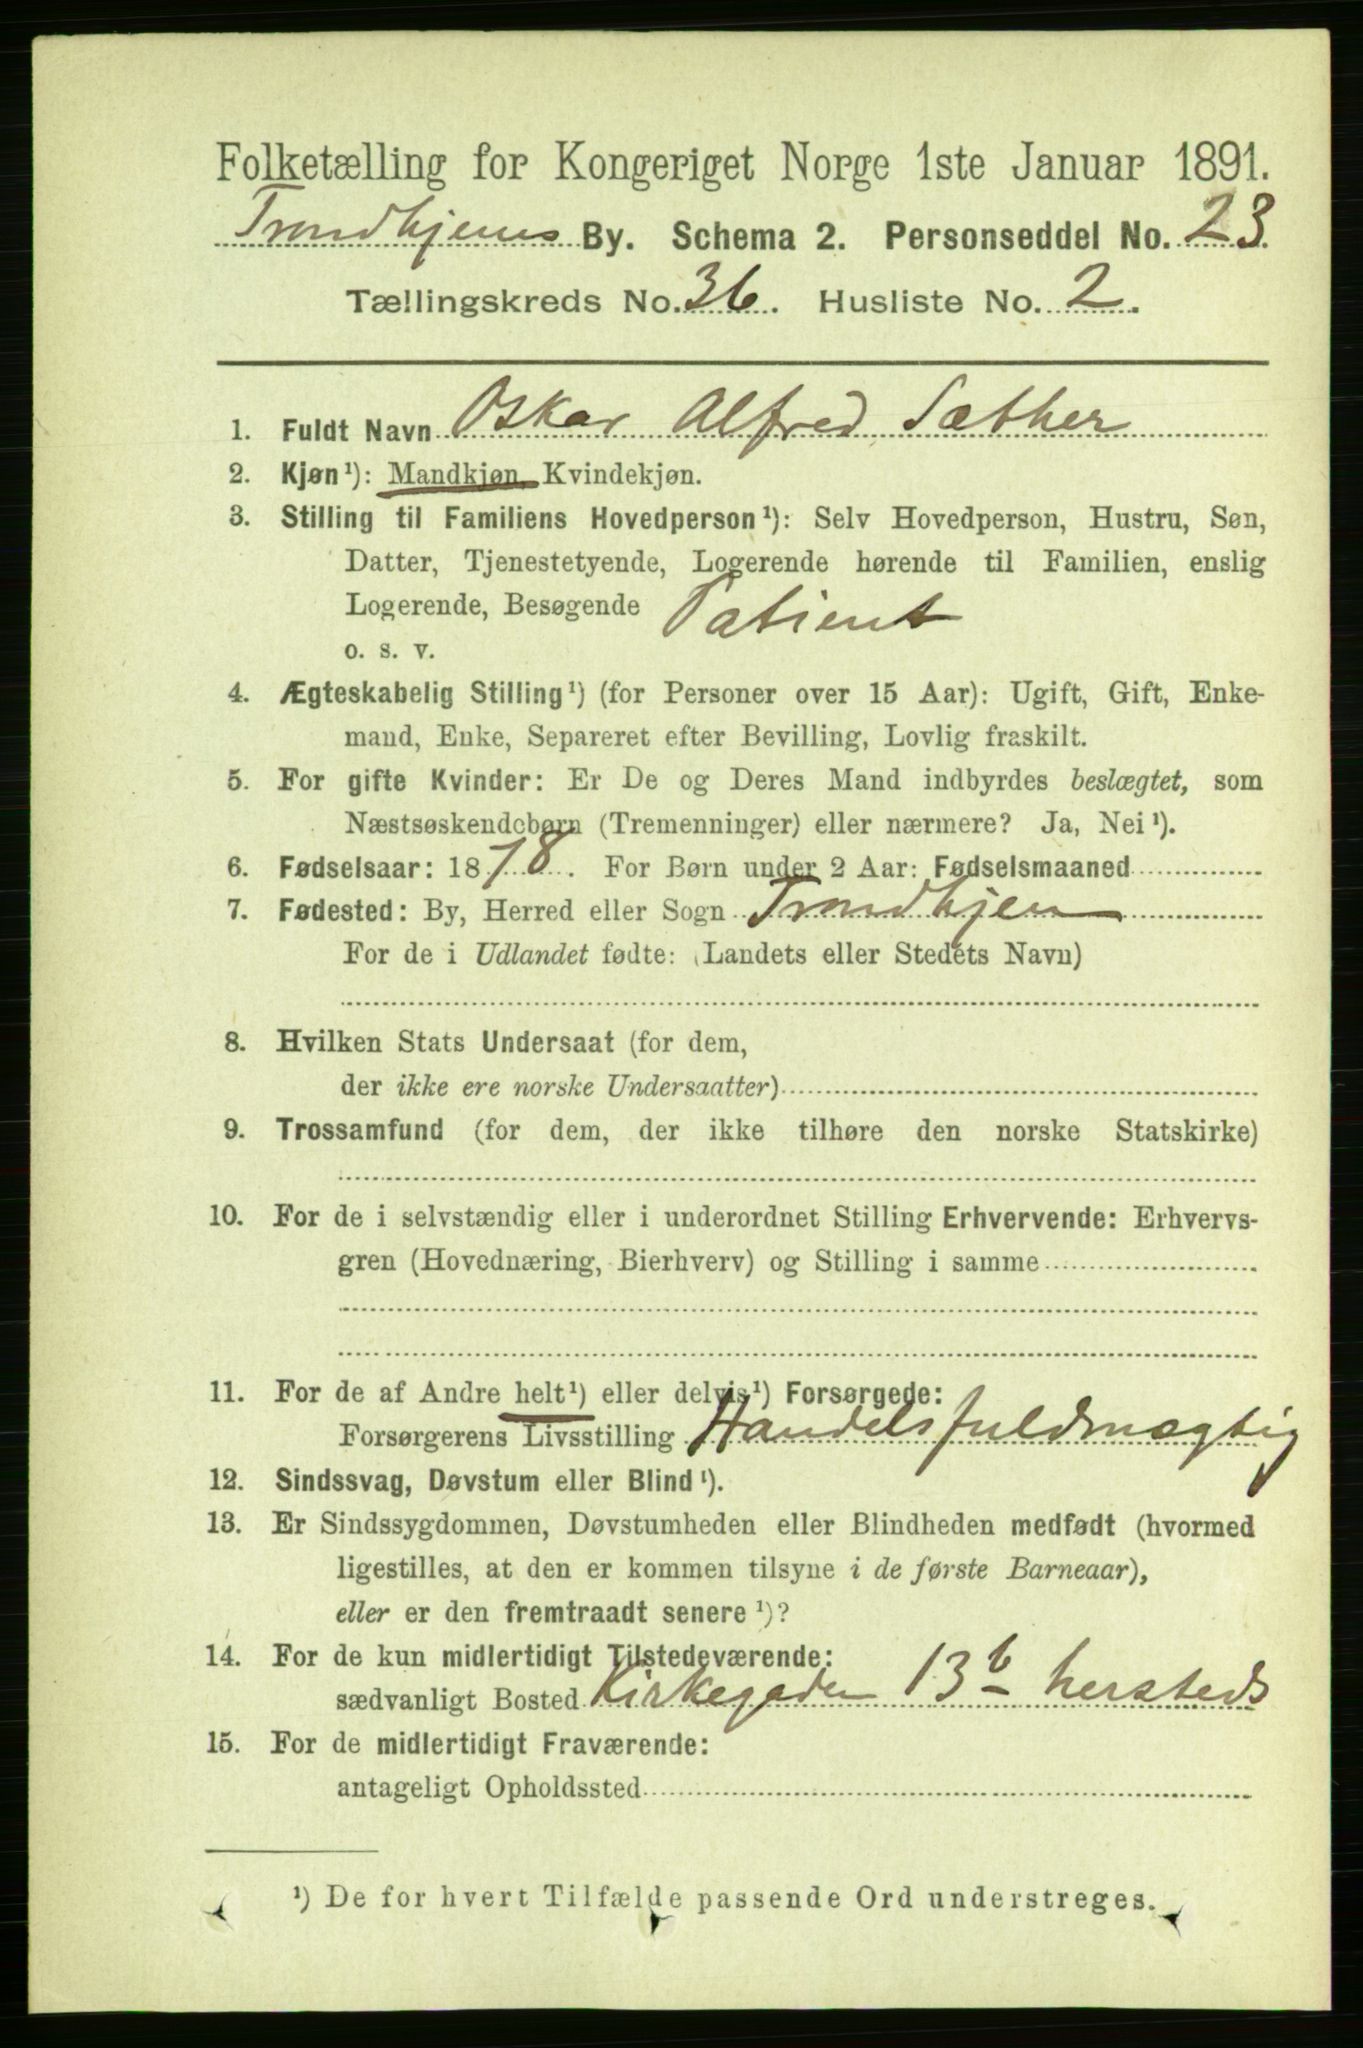 Folketælling for Kongeriget Norge 1ste Januar 1891.
Trondhjems By. Schema 2. Personseddel No. 23.
Tællingskreds No. 36. Husliste No. 2.
1. Fuldt Navn Oskar Alfred Sæther
2. Kjøn¹): Mandkjøn Kvindekjøn.
3. Stilling til Familiens Hovedperson¹): Selv Hovedperson, Hustru, Søn,
Datter, Tjenestetyende, Logerende hørende til Familien, enslig
Logerende, Besøgende Patient
o. s. v.
4. Ægteskabelig Stilling¹) (for Personer over 15 Aar): Ugift, Gift, Enke-
mand, Enke, Separeret efter Bevilling, Lovlig fraskilt.
5. For gifte Kvinder: Er De og Deres Mand indbyrdes beslægtet, som
Næstsøskendebørn (Tremenninger) eller nærmere? Ja, Nei¹).
6. Fødselsaar: 1878. For Børn under 2 Aar: Fødselsmaaned
7. Fødested: By, Herred eller Sogn Trondhjem
For de i Udlandet fødte: (Landets eller Stedets Navn)
8. Hvilken Stats Undersaat (for dem,
der ikke ere norske Undersaatter)
9. Trossamfund (for dem, der ikke tilhøre den norske Statskirke)
10. For de i selvstændig eller i underordnet Stilling Erhvervende: Erhvervs-
gren (Hovednæring, Bierhverv) og Stilling i samme
11. For de af Andre helt¹) eller delvis¹) Forsørgede:
Forsørgerens Livsstilling Handelsfuldmægtig
12. Sindssvag, Døvstum eller Blind¹).
13. Er Sindssygdommen, Døvstumheden eller Blindheden medfødt (hvormed
ligestilles, at den er kommen tilsyne i de første Barneaar),
eller er den fremtraadt senere¹)?
14. For de kun midlertidigt Tilstedeværende:
sædvanligt Bosted Kirkegaden 13b hersteds
15. For de midlertidigt Fraværende:
antageligt Opholdssted
¹) De for hvert Tilfælde passende Ord understreges.